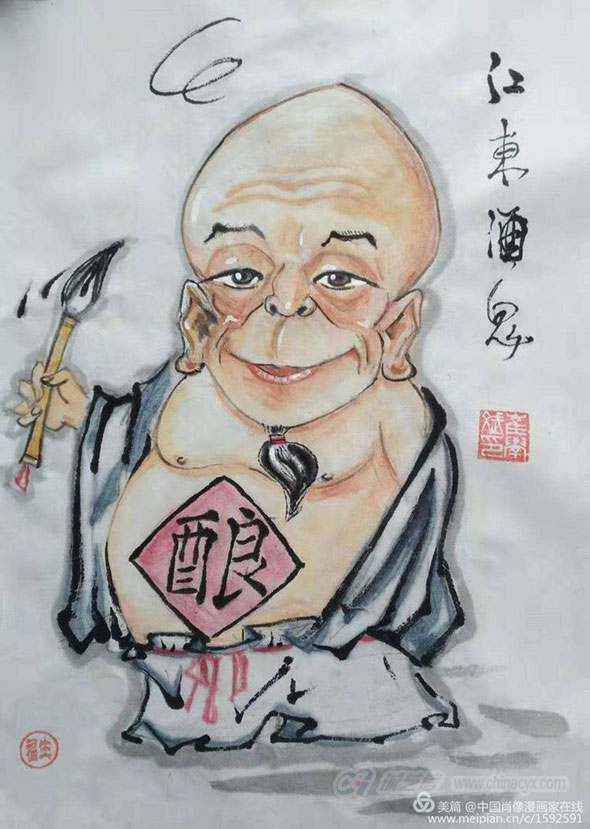 江東酒鬼
酿
www.chinacyx.com
美篇 @中国肖像漫画家在线
www.meipian.cn/c/1592591